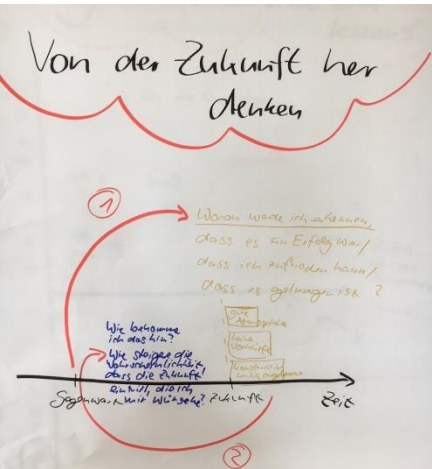 Von der Zukunft her
denken
1
Woran werde ich erkennen,
dass es ein Erfolg war/
dass ich zufrieden kann/
dass es gelungen ist?
gute
Atmosphäre
keine
Wie bekomme
ich das hin?
Wie steigere die
Wahrscheinlichkeit,
dass die Zukunft
eintritt, die ich
mir wünsche?
Gegenwart
Zukunft
Zeit
2